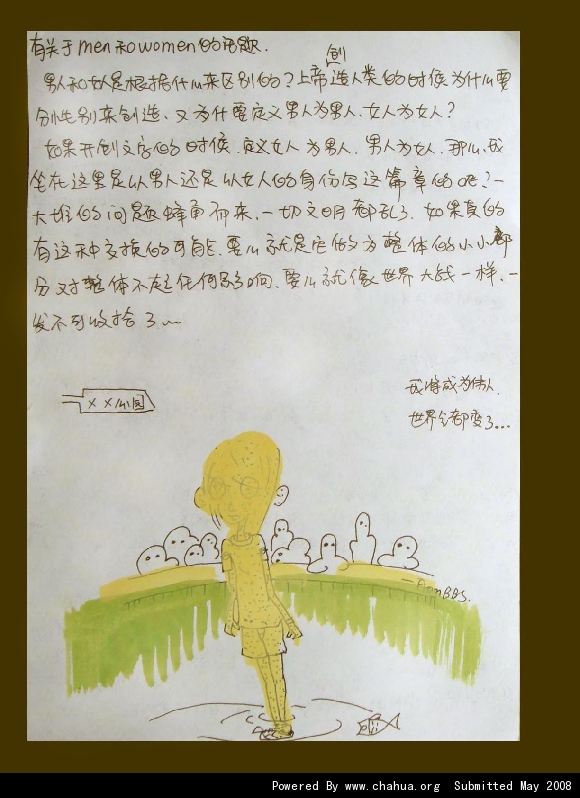 有关于men和women的问题.
创
男人和女人是根据什么来区别的?上帝造人类的时候为什么要
分性别来创造、又为什要定义男人为男人.女人为女人?
如果开创文字的时候.定义女人为男人.男人为女人.那么、我
坐在这里是以男人还是以女人的身份写这篇章的呢?一
大堆的问题蜂甬而来.一切文明都乱了.如果真的
有这种交换的可能.要么就是它做为整体的小小部
分对整体不起任何影响.要么就像世界大战一样.一
发不可收拾了~
我将成为伟人.
世界全都变了...
××公园
Powered By www.chahua.org Submitted May 2008